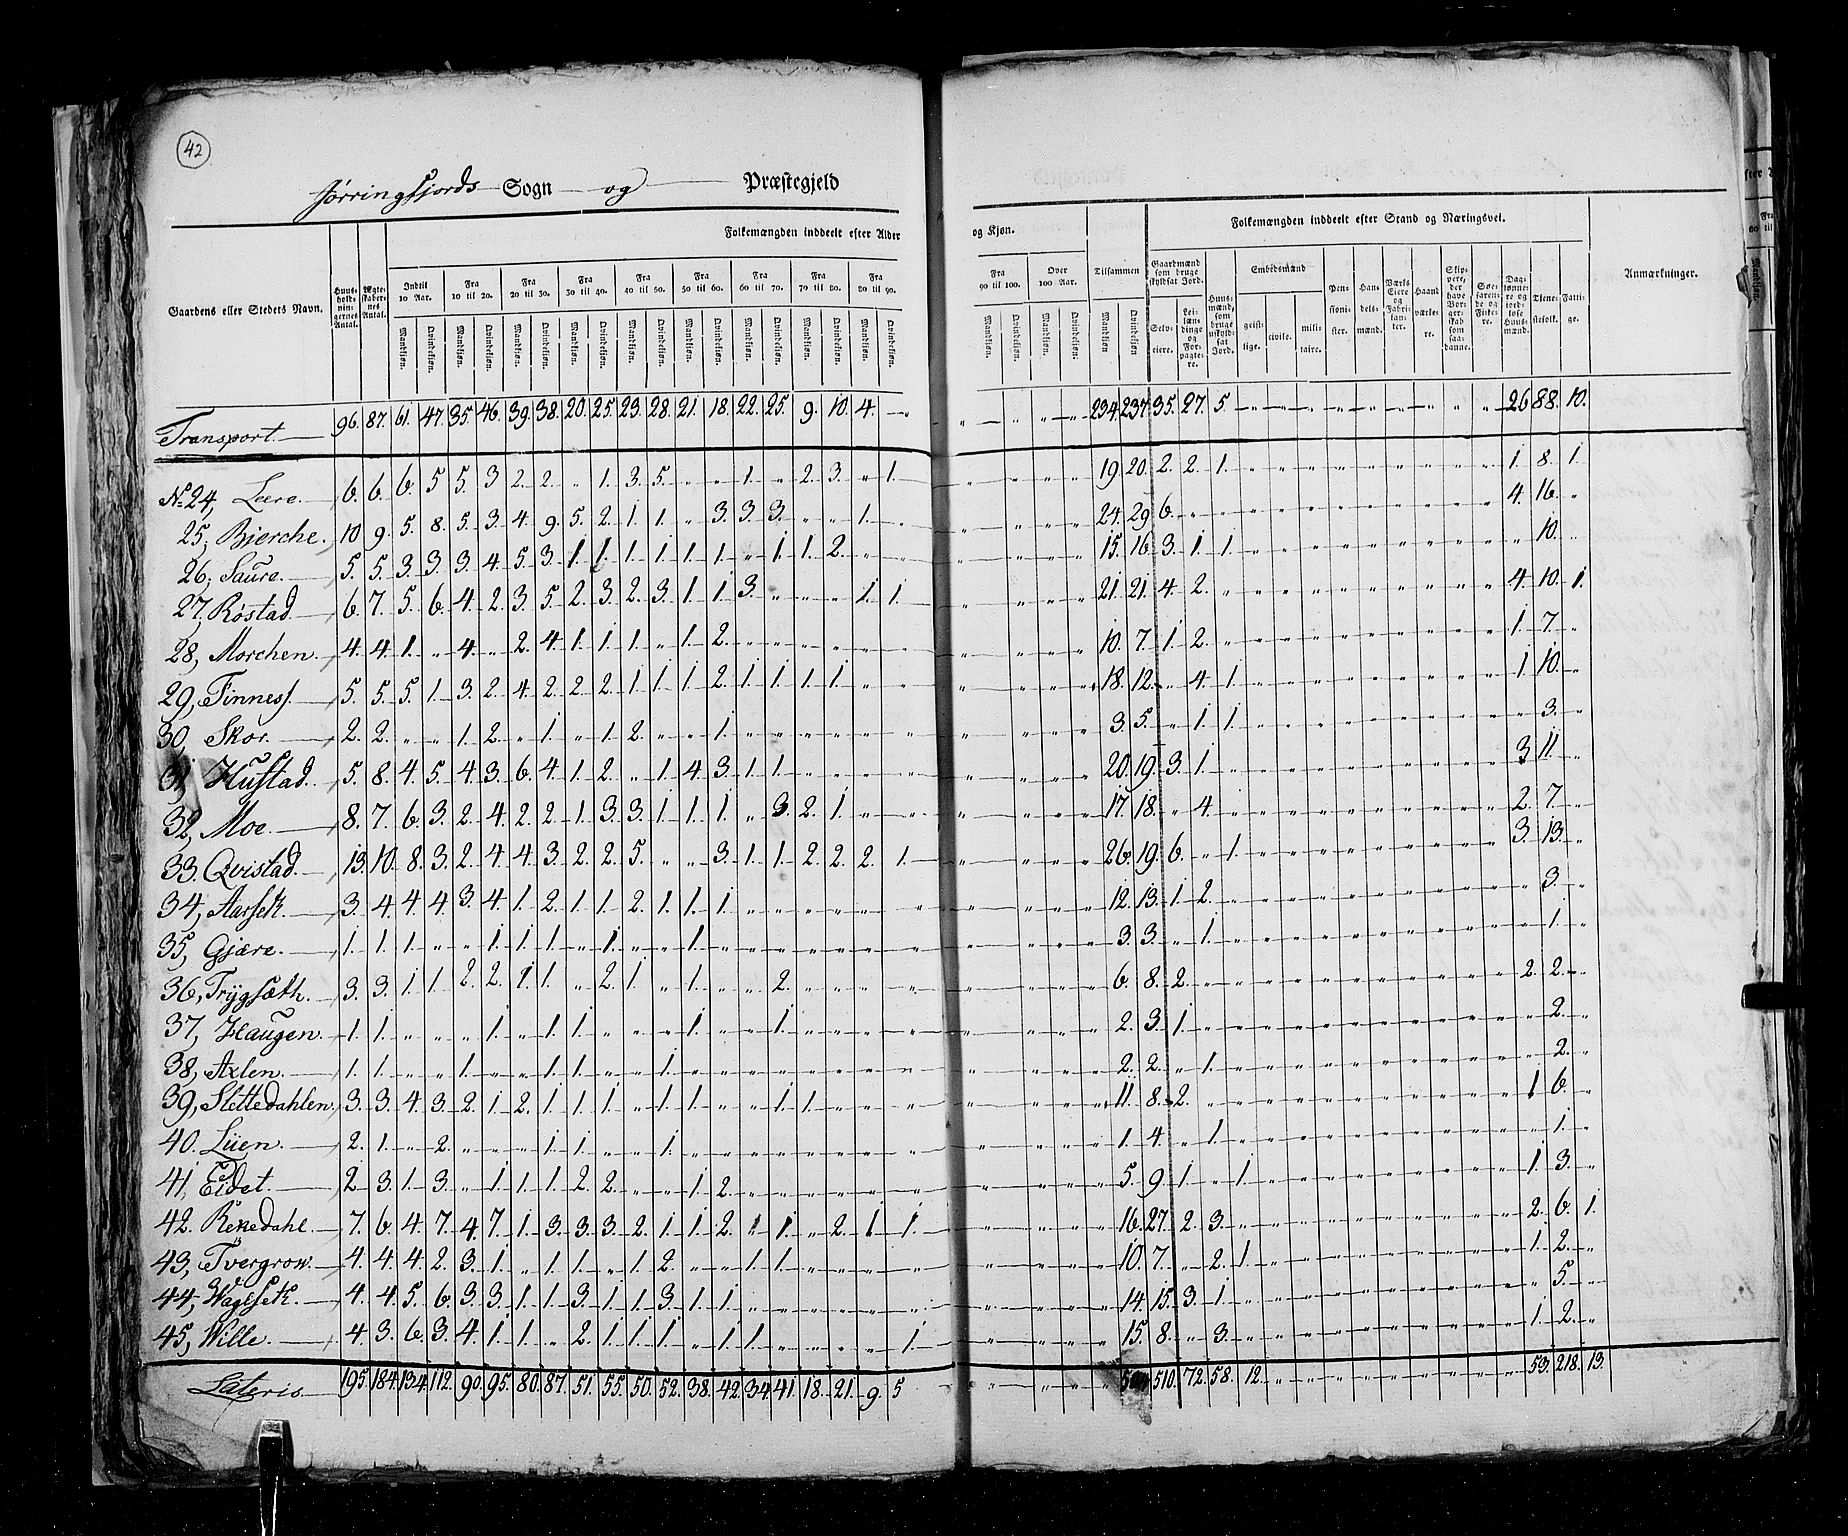 42
Jørringfjords Sogn og Præstegjeld
Folkemængden inddeelt efter Alder og Kjøn.
Folkemængden inddeelt efter Stand og Næringsvei.
Gaardens eller Stedets Navn.
Huusholdningernes Antal.
Ægteskabernes Antal.
Indtil 10 Aar.
Fra 10 til 20.
Fra 20 til 30.
Fra 30 til 40.
Fra 40 til 50.
Fra 50 til 60.
Fra 60 til 70.
Fra 70 til 80.
Fra 80 til 90.
Fra 90 til 100.
Over 100 Aar.
Tilsammen
Mandkjøn. Qvindekjøn.
Gaardmænd som bruge skyldsat Jord.
Selveiere.
Leilændinge og Forpagtere.
Huusmænd, som bruge uskyldsat Jord.
Embedsmænd
geistlige.
civile.
militaire.
Pensionister.
Handelsmænd.
Værks Eiere og Fabrikanter.
Haandværkere.
Skippere, der have Borgerskab som saadanne.
Søefarende og Fiskere.
Daglønnere og jordløse Huusmænd.
Tienestefolk.
Fattige.
Anmærkninger.
Transport 96. 87. 61. 47. 35. 46. 39. 38. 20. 25. 23. 28. 21. 18. 22. 25. 9. 10. 4. „ „ „ „ 234. 237. 35. 27. 5. 26 88. 10.
No 24, Leere. 6. 6. 6. 5 5. 3 2. 2. „ 1. 3. 5. „ „ 1. „ 2. 3. „ 1. 19. 20. 2. 2. 1. 1. 8. 1.
25, Bjerche. 10 9. 5. 8. 5. 3. 4. 9. 5. 2. 1. 1. „ 3. 3. 3. „ „ 1. „ 24. 29 6. 4. 16. „
26, Saure. 5. 5. 3. 3. 3. 4. 5. 3. 1. 1. 1. 1. 1. 1. „ 1. 1. 2. „ „ 15. 16. 3. 1. 1. „ 10. „
27, Røstad 6. 7. 5. 6. 4. 2. 3. 5. 2. 3. 2. 3. 1. 1. 3. „ „ „ 1. 1. 21. 21. 4. 2. 4. 10. 1.
28, Morchen. 4. 4. 1. „ 4. „ 2. 4. 1. 1. 1. „ 1. 2. „ „ „ „ „ „ 10. 7. 1. 2. 1. 7. „
29, Finnes. 5. 5. 5. 1. 3. 2. 4. 2. 2. 2. 1. 1. 1. 2. 1. 1. 1. 1. „ „ 18. 12. „ 4. 1. 1 10. „
30, Skor. 2. 2. „ „ 1. 2. „ 1. „ 1. 2. „ „ 1. „ „ „ „ „ „ 3. 5. „ 1. 1. „ 3. „
31, Hustad. 5. 8. 4. 5. 4. 3. 6. 4. 1. 2. „ 1. 4. 3. 1. 1. „ „ „ „ 20. 19. 3. 1. 3 11. „
32, Moe. 8. 7. 6. 3. 2. 4. 2. 2. 1. 3. 3. 1. 1. 1. „ 3. 2. 1. „ „ 17. 18. „ 4. 2. 7. „
33. Qvistad. 13. 10. 8. 3. 2. 4. 4. 3. 2. 2. 5. „ „ 3. 1. 1. 2. 2. 2. 1. 26. 19. 6. „ 1. 3. 13. „
34, Aarsetk. 3. 4. 4. 4. 3. 4. 1. 2. 1. 1. 2. 1. 1. 1. „ „ „ „ „ „ 12. 13. 1. 2. „ 3. „
35, Gjære. 1. 1. 1. „ „ 1. 1. 1. „ 1. „ „ 1. „ „ „ „ „ „ „ 3. 3. „ 1. „ 1. „
36, Trygsæth. 3. 3. 1. 1. 2. 2. 1. 1. „ 2. 1. „ 1. „ „ 2. „ „ „ „ 6. 8. 2. 2. 2. „
37, Haugen. 1. 1. „ „ „ 1. „ 1. 1. „ „ „ 1. „ „ 1. „ „ „ „ 2. 3. 1. „ 2. „
38, Axlen. 1. 1. „ „ 1. „ „ 1. 1. „ „ 1. „ „ „ „ „ „ „ „ 2. 2. „ 1. „ 2. „
39, Slettedahlen. 3. 3. 4. 3. 2. 1. 2. 1. 1. 1. „ 1. 1. „ „ 1. 1. „ „ „ 11. 8. 2. 1 6. „
40. Lüen. 2. 1. „ 2. „ „ „ 1. 1. „ „ „ 1. „ „ „ „ „ „ „ 1. 4. „ 1. „ 1. „
41, Eidet. 2. 3. 1. 3. „ 1. 1. 1. 2. 2. „ „ 1. 2. „ „ „ „ „ „ 5. 9. 1. „ 1. 1. 3. „
42. Rekedahl. 7. 6. 4. 7. 4. 7. 1. 3. 3. 3. 2. 1. 1. 2. 1 1. „ 2. 1 1. 16. 27. 2. 3. 2. 6. 1.
43, Tvergrow. 4. 4. 4. 2. 3. 1. „ 1. 1. „ 1. 2. „ „ 1. 1. „ „ „ „ 10. 7. „ 2. 1. 1. 2. „
44, Wagsetk. 4. 4. 5. 6. 3. 3. 1. 1. 3. 1. 1. 3. 1. 1. „ „ „ „ „ „ 14. 15. 3. 1. „ 5. „
45, Wille. 4. 3. 6. 3. 4. 1. 1. „ 2. 1. 1. 1. „ 1. 1. „ „ „ „ 1. 15. 8. „ 3. 1. 2. „
Lateris 195. 184. 134. 112. 90. 95. 80. 87. 51. 55. 50. 52. 38. 42. 34. 41. 18. 21. 9. 5 510. 72. 58. 12. 53. 218. 13.